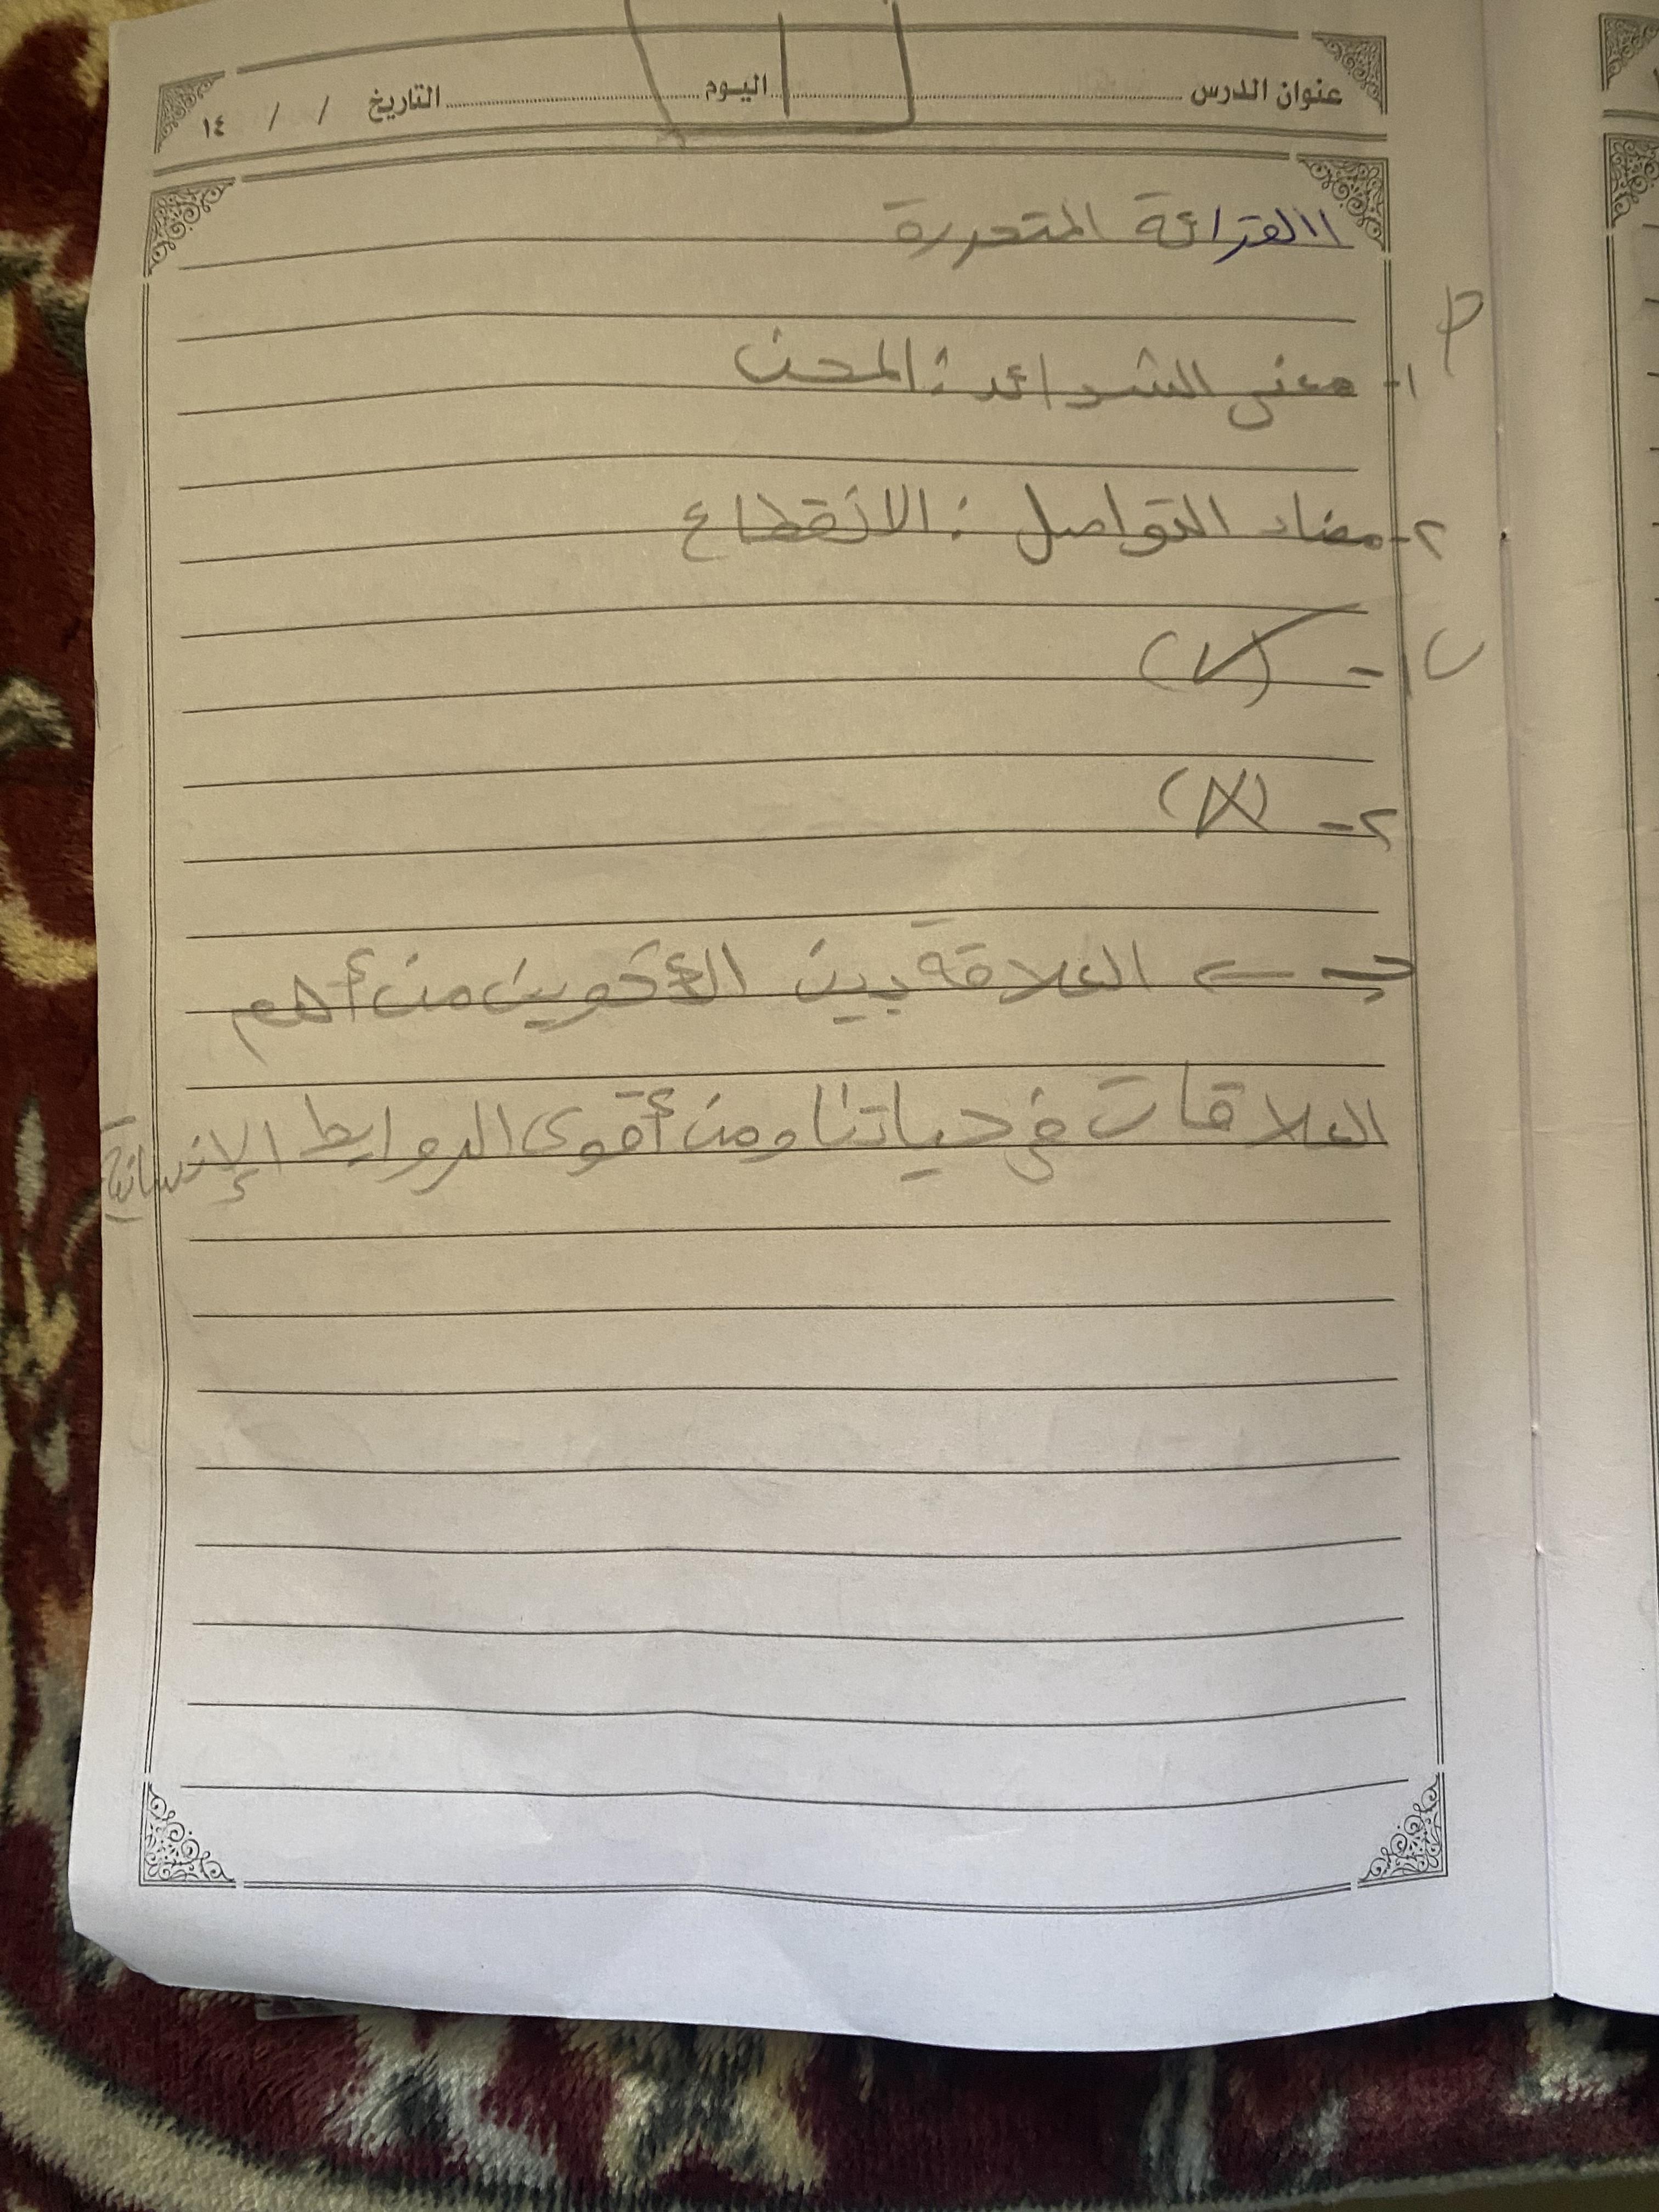 عنوان الدرس اليوم التاريخ / / ١٤
القرائة المتحررة
أ
١- معنى الشدائد : المحن
٢- مضاد التواصل : الانقطاع
ب ١- (✓)
٢- (X)
ج ← العلاقة بين الأخوين من أهم
العلاقات في حياتنا ومن أقوى الروابط الإنسانية